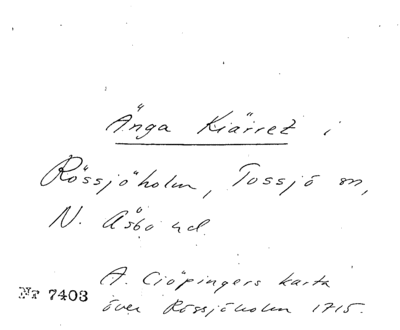 Änga Kiärret i
Rössjöholm, Tossjö sn,
N. Åsbo hd
A. Ciöpingers karta
Nr 7403
över Rössjöholm 1715.